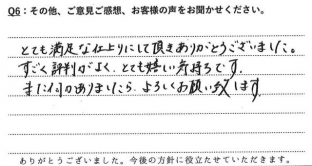 Q6：その他、ご意見ご感想、お客様の声をお聞かせください。
とても満足な仕上りにして頂きありがとうございました。
すごく評判がよく、とても嬉しい気持ちです。
また何かありましたら、よろしくお願い致します
ありがとうございました。今後の方針に役立たせていただきます。